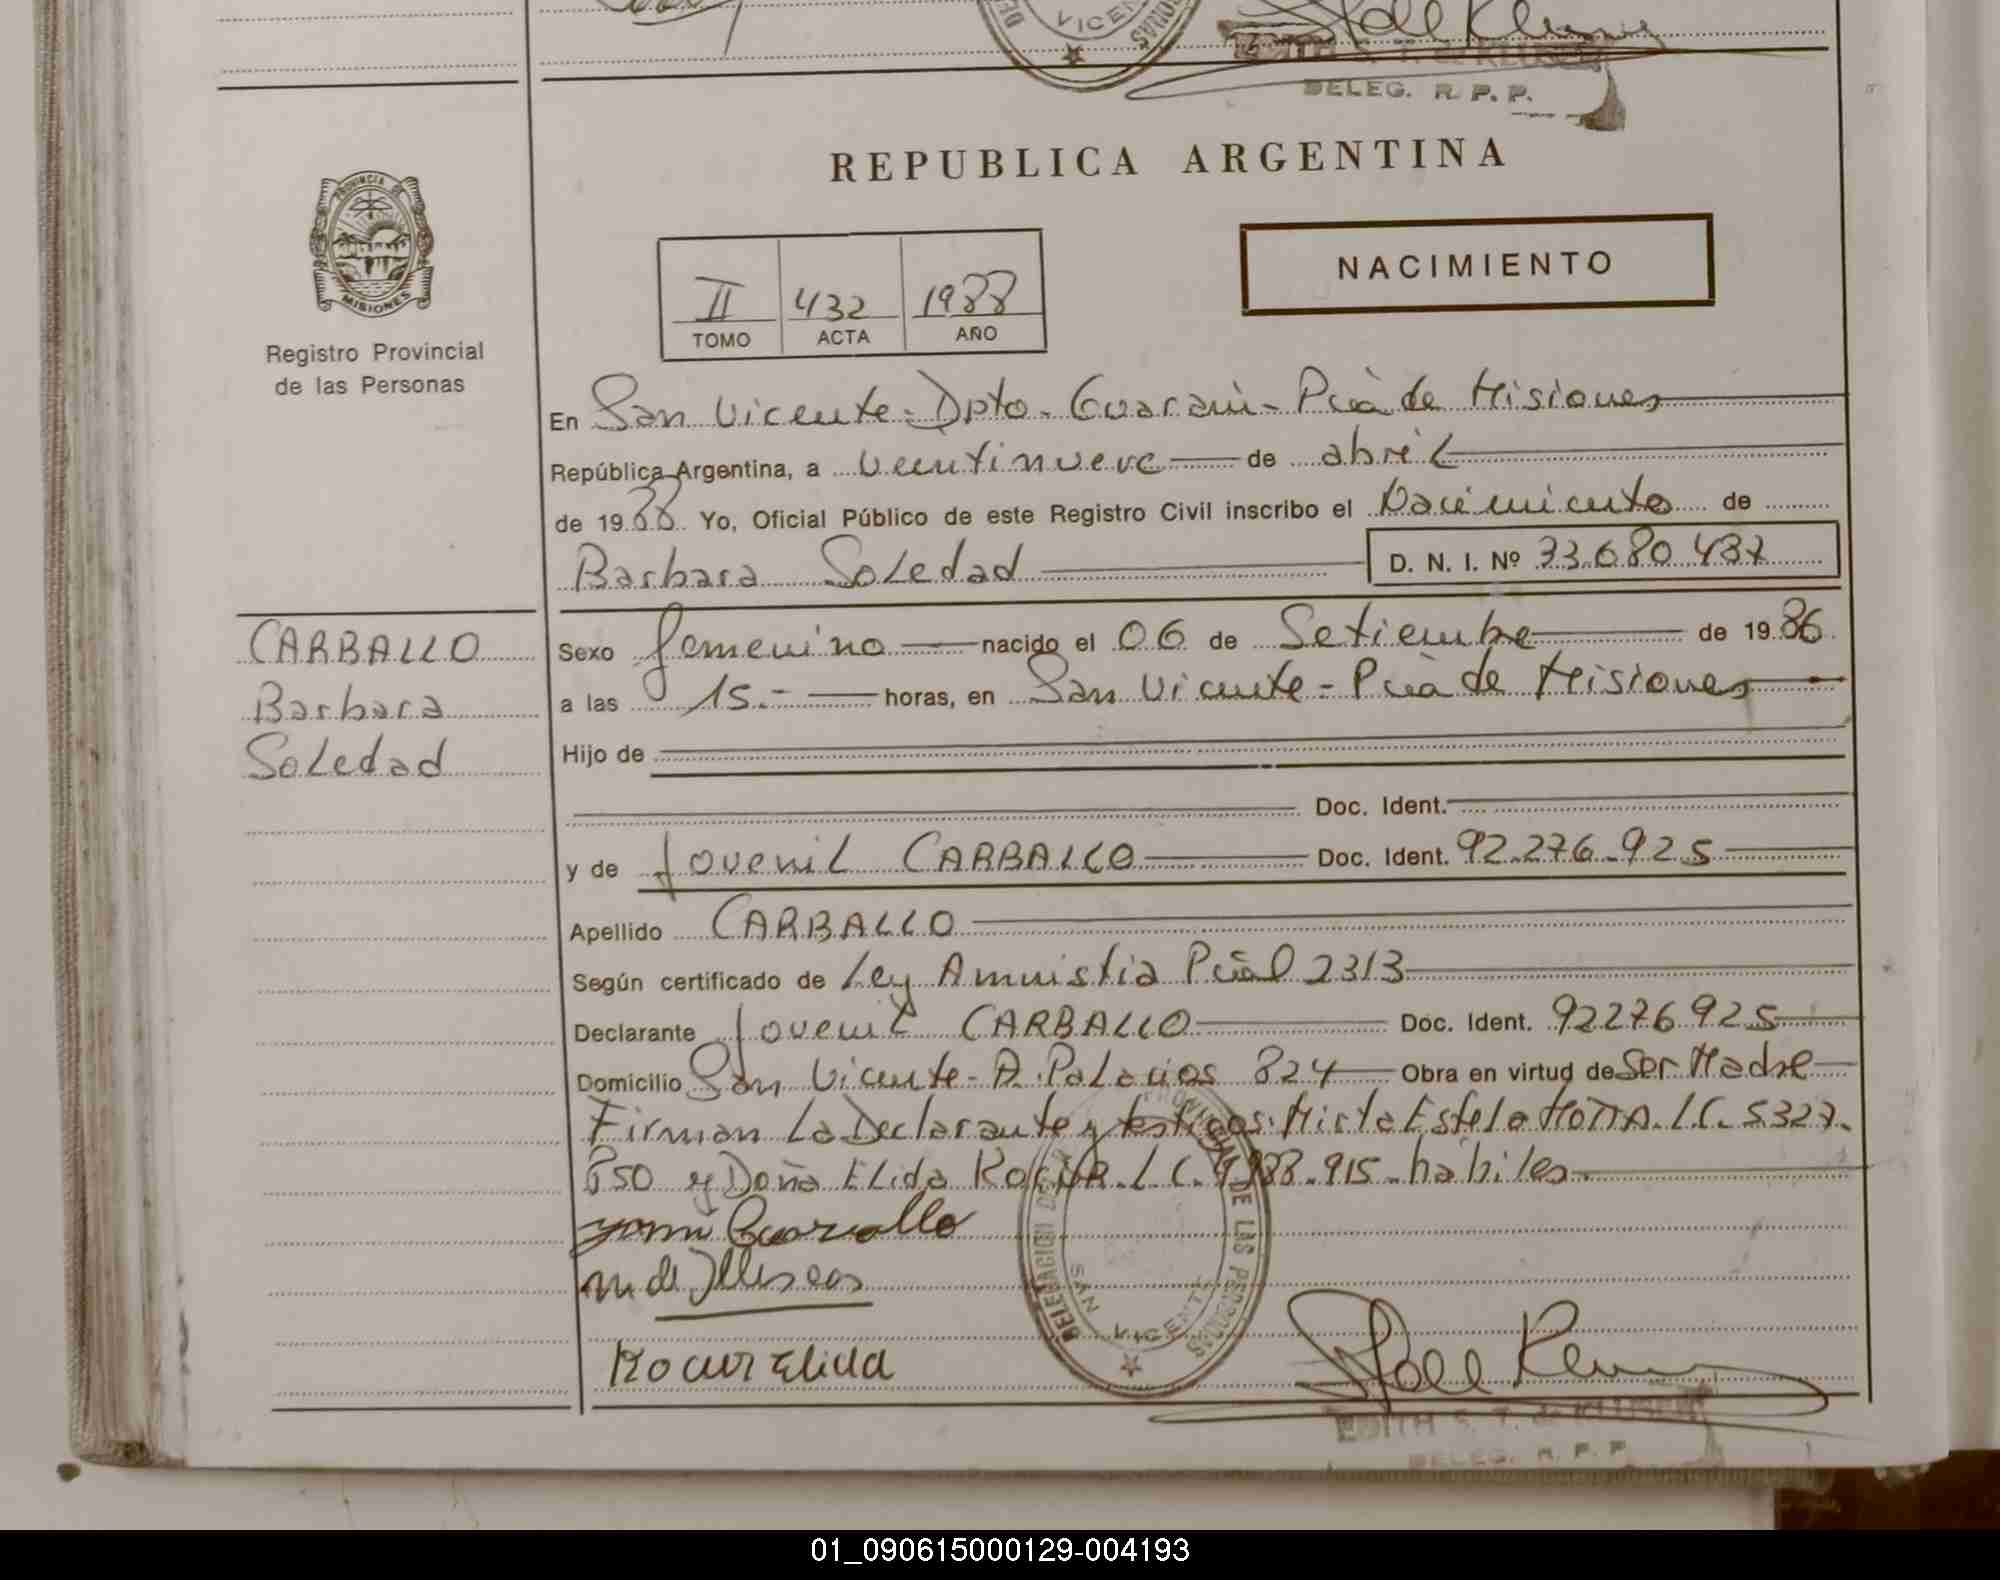 VICENTE
EDITH S. T. de KLUSENER
DELEG. R. P. P.
REPUBLICA ARGENTINA
PROVINCIA DE
MISIONES
NACIMIENTO
II 432 1988
TOMO ACTA AÑO
Registro Provincial
de las Personas
En San Vicente - Dpto. Guaraní - Pcia de Misiones
República Argentina, a veintinueve de abril
de 1988 Yo, Oficial Público de este Registro Civil inscribo el Nacimiento de
Barbara Soledad D. N. I. Nº 33.680.437
CARBALLO
Barbara
Soledad
Sexo femenino nacido el 06 de Setiembre de 1986
a las 15.- horas, en San Vicente - Pcia de Misiones
Hijo de
Doc. Ident.
y de Jovenil CARBALLO Doc. Ident. 92.276.925
Apellido CARBALLO
Según certificado de Ley Amnistia Pcial 2313
Declarante Jovenil CARBALLO Doc. Ident. 92276925
Domicilio San Vicente - A. Palacios 824 Obra en virtud de Ser Madre
Firman La Declarante y testigos: Mirta Estela MOTTA. L.C. 5327.
650 y Doña Elida KOCUR. L.C. 9.988.915 - habiles.
Carvallo
m de Illescas
Kocur Elida
DELEGACION PROVINCIAL DE LAS PERSONAS
SAN VICENTE
EDITH S. T. de KLUSENER
DELEG. R. P. P.
01_090615000129-004193